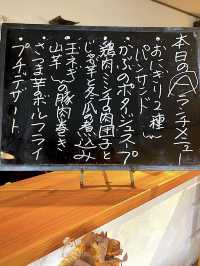 本日のランチメニュー
おにぎり2種
パンサンド
かぶのポタージュスープ
鶏肉ミンチの肉団子と
じゃが芋と冬瓜の煮込み
玉ネギの豚肉巻き
山芋
さつま芋のボールフライ
プチデザート